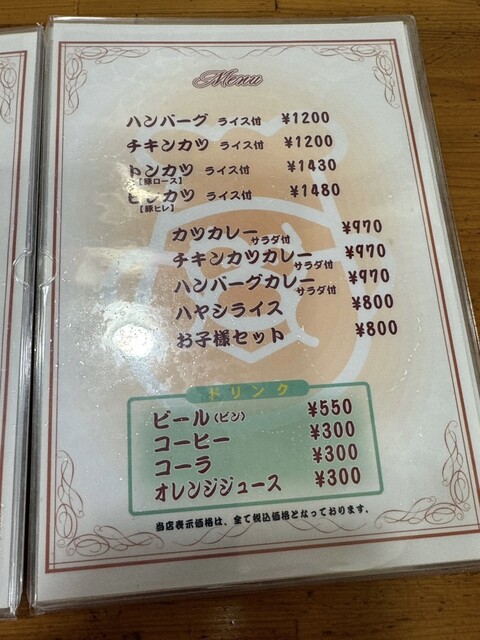 Menu
ハンバーグ ライス付 ¥1200
チキンカツ ライス付 ¥1200
トンカツ ライス付 ¥1430
【豚ロース】
ヒレカツ ライス付 ¥1480
【豚ヒレ】
カツカレー サラダ付 ¥970
チキンカツカレー サラダ付 ¥970
ハンバーグカレー サラダ付 ¥970
ハヤシライス ¥800
お子様セット ¥800
ドリンク
ビール(ビン) ¥550
コーヒー ¥300
コーラ ¥300
オレンジジュース ¥300
当店表示価格は、全て税込価格となっております。